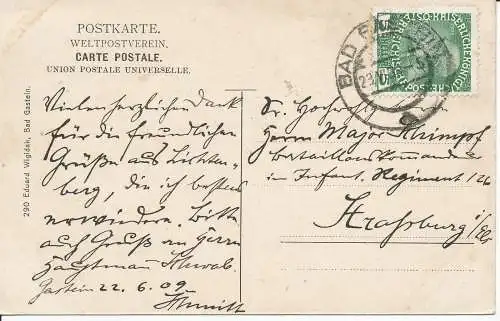 POSTKARTE.
WELTPOSTVEREIN.
CARTE POSTALE.
UNION POSTALE UNIVERSELLE.
290 Eduard Wigidak, Bad Gastein.
BAD
Vielen herzlichen Dank
für die freundlichen
Grüße aus Lichten-
berg, die ich bestens
erwidere. Bitte
auch Gruß an Herrn
Hauptmann Schwab.
Gastein 22.6.09
Schmitt
Sr. Hochwohlgeboren
Herrn Major Krimpf
Bataillonskommandeur
im Infant. Regiment 126
Straßburg
i/Els